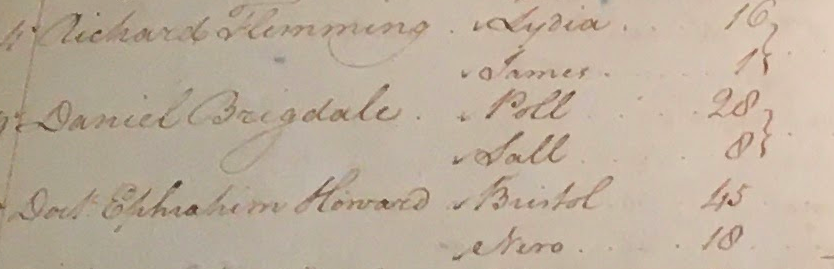 Richard Flemming . Lydia . 16
James . 1
Daniel Brigdale . Poll 28
Sall 8
Doct Ephrahim Howard Bristol 45
Nero . 18